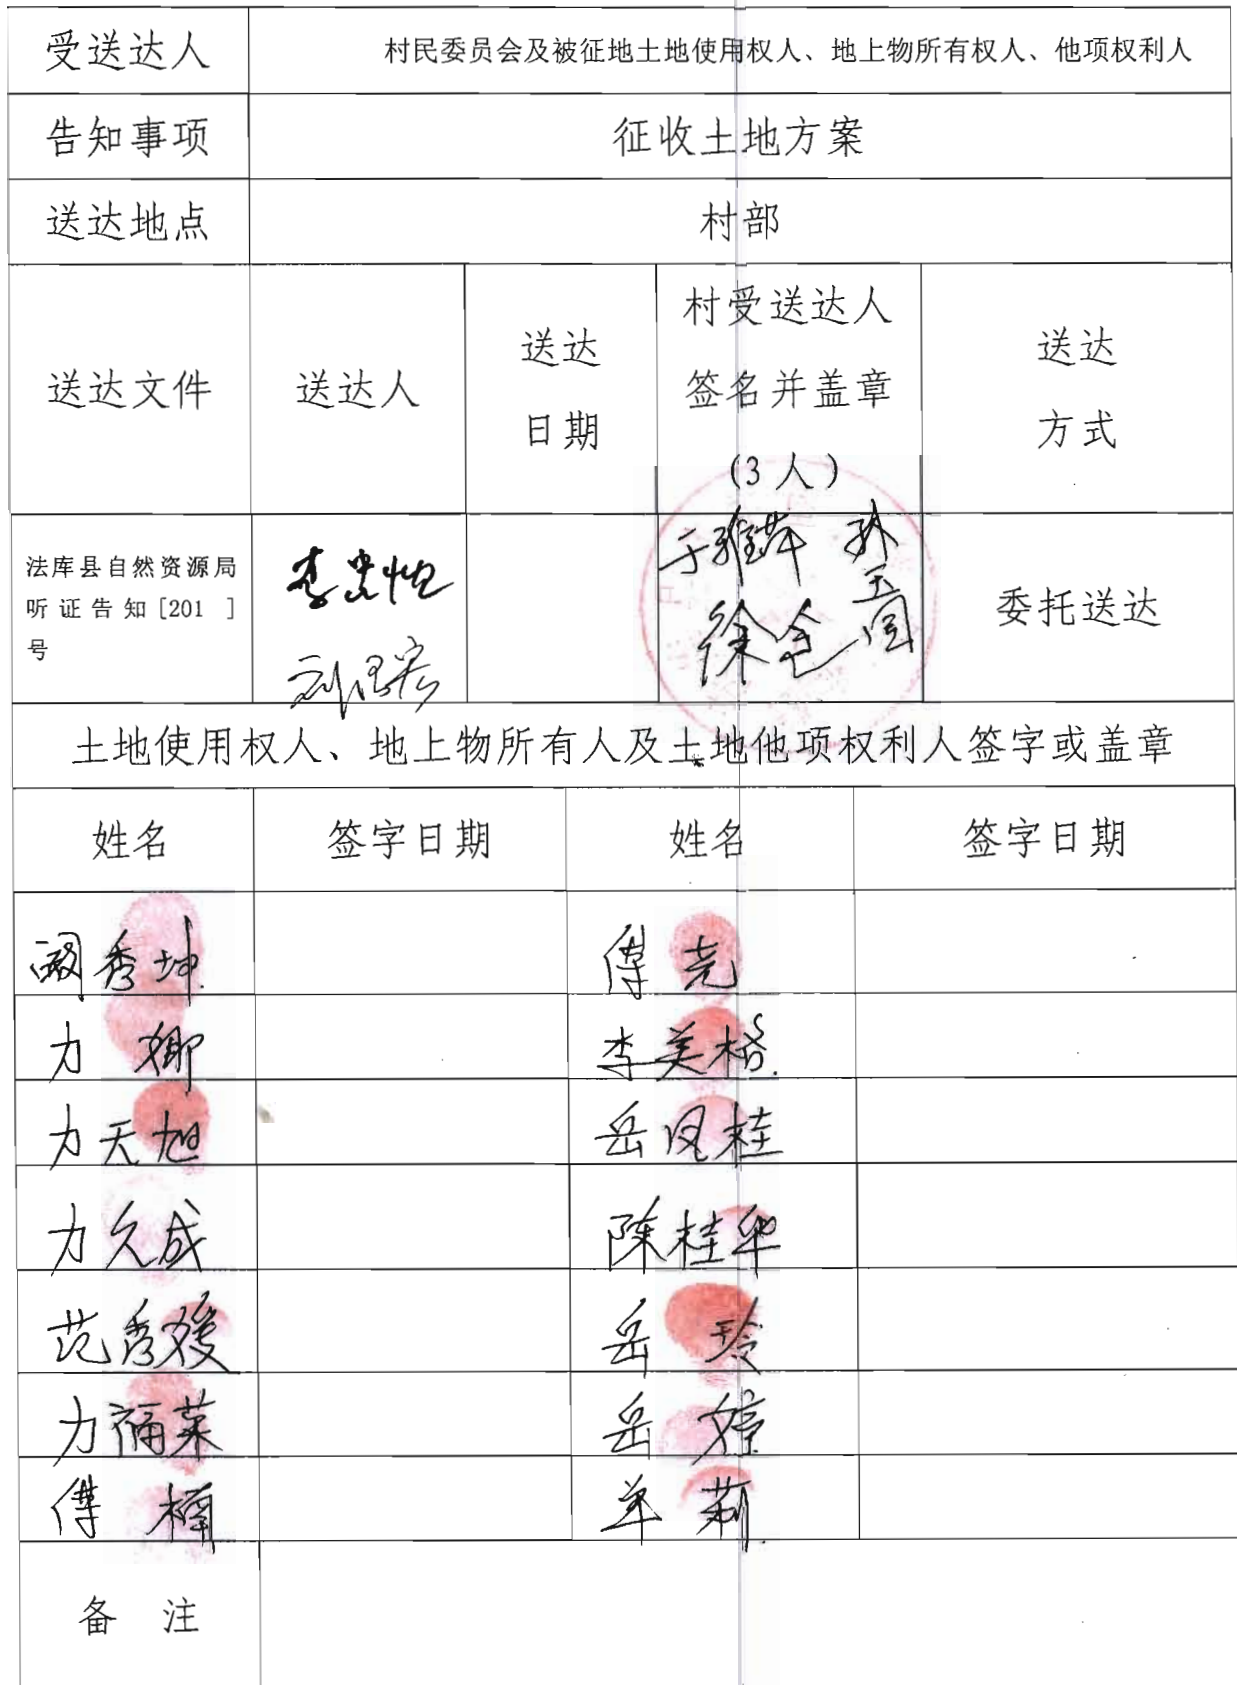 受送达人 村民委员会及被征地土地使用权人、地上物所有权人、他项权利人
告知事项 征收土地方案
送达地点 村部
送达文件 送达人 送达日期 村受送达人签名并盖章(3人) 送达方式
法库县自然资源局
听证告知[201 ]
号
于雅萍
委托送达
土地使用权人、地上物所有人及土地他项权利人签字或盖章
姓名 签字日期 姓名 签字日期
阚秀坤 傅尧
力娜 李美格
力天旭 岳凤桂
力久成 陈桂华
范秀媛 岳玲
力福菜 岳婷
傅楠 单莉
备 注